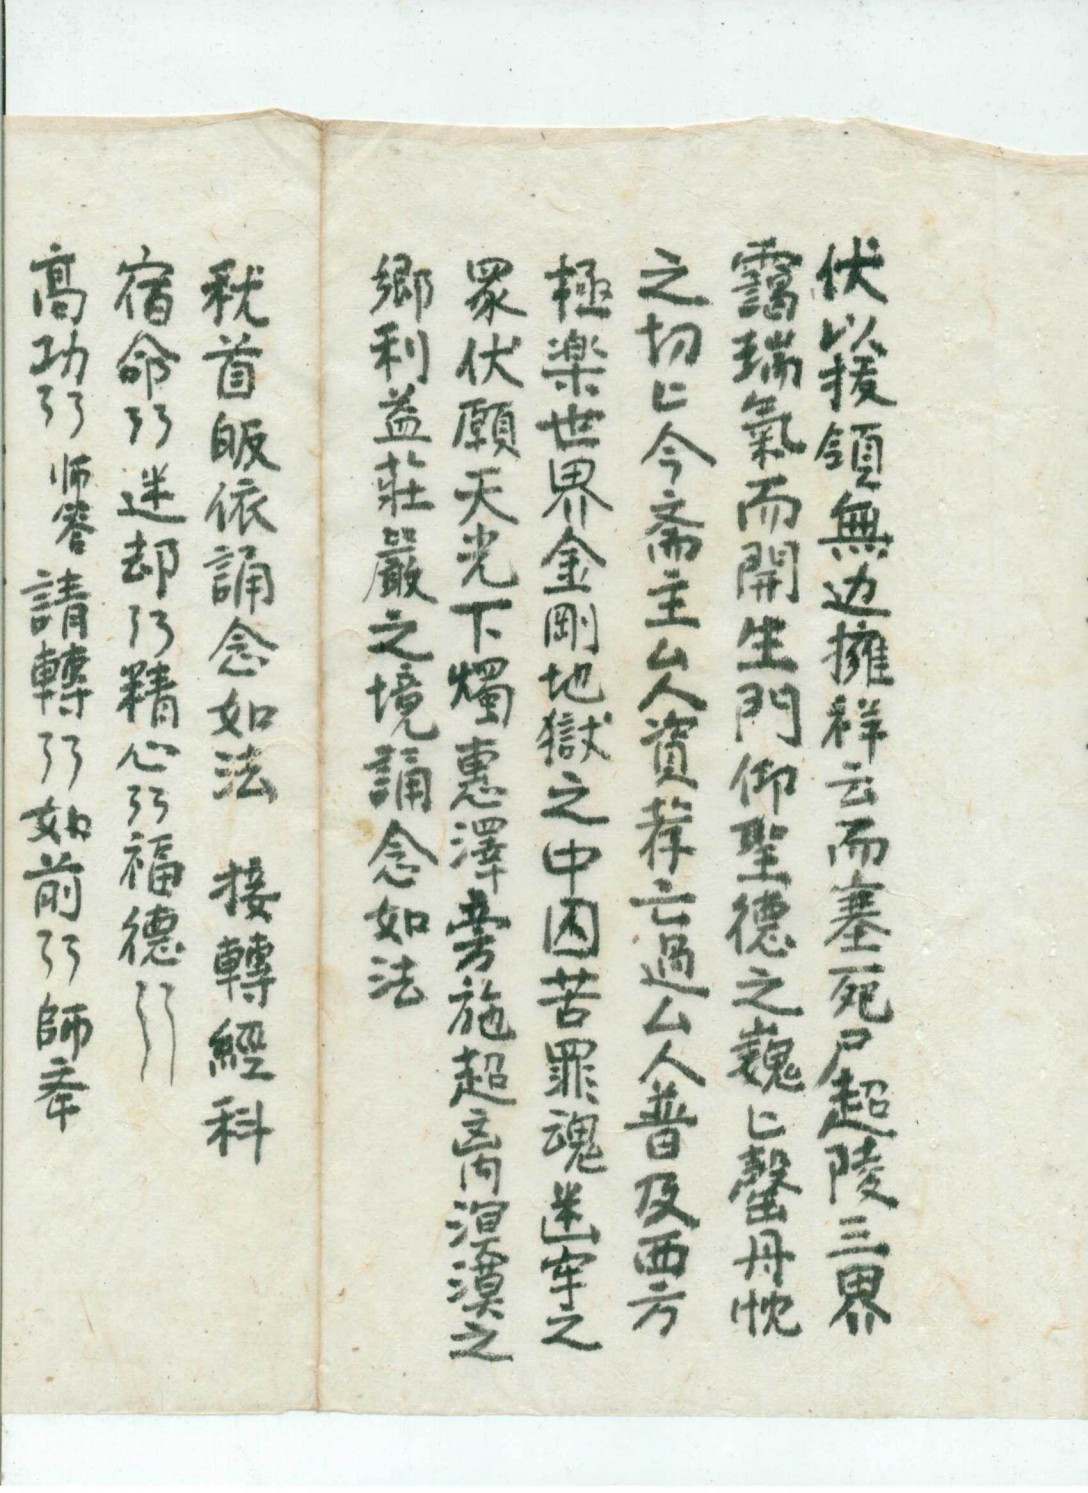 伏以援領無边擁祥云而塞死尸超陵三界
靄瑞氣而開生門仰聖德之巍匕罄丹忱
之切匕今斋主厶人资荐亡過厶人普及西方
極楽世界金剛地獄之中囚苦罪魂迷牢之
眾伏願天光下燭惠澤旁施超离溟漠之
鄉利益莊嚴之境誦念如法
稽首皈依誦念如法 接轉經科
宿命 迷却 精心 福德
高功 师答 請轉 如前 師奉